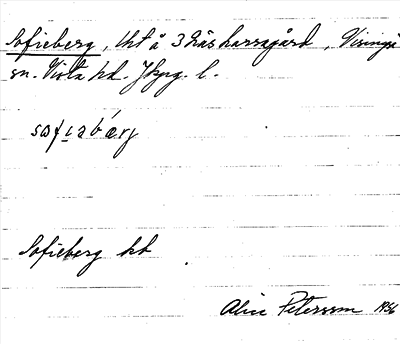 Sofieberg, lht å 3 Näs herrgård, Visingsö
sn. Vista hd. Jkpg. l.
sofiabærj
Sofieberg hb
Alice Petersson 1936